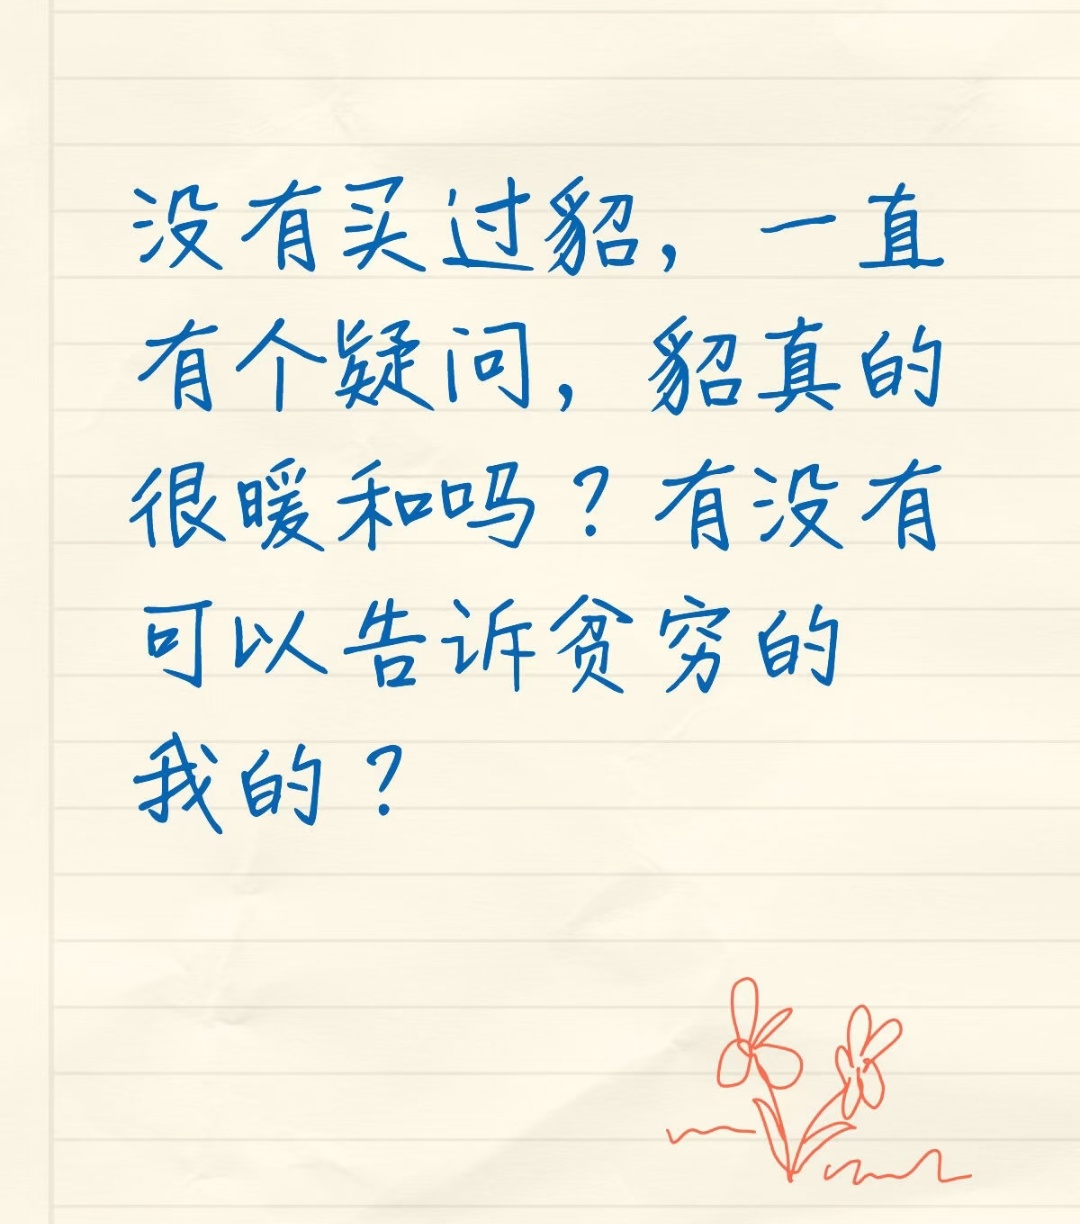 没有买过貂，一直
有个疑问，貂真的
很暖和吗？有没有
可以告诉贫穷的
我的？